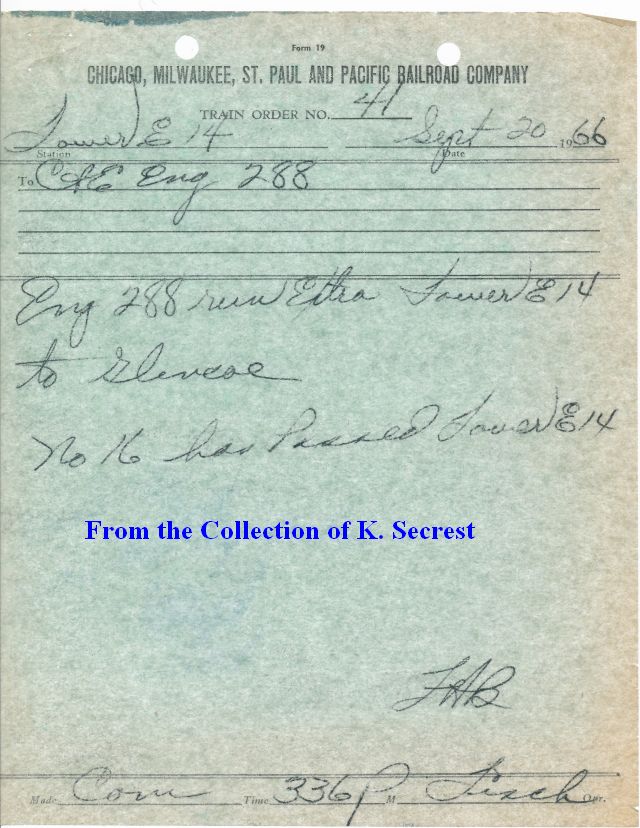 Form 19
CHICAGO, MILWAUKEE, ST. PAUL AND PACIFIC RAILROAD COMPANY
TRAIN ORDER NO. 41
Tower E 14 Sept 20 1966
Station Date
To C&E Eng 288
Eng 288 run Extra Tower E 14
to Glencoe
No 16 has Passed Tower E 14
From the Collection of K. Secrest
Made Com Time 336 P M Opr.